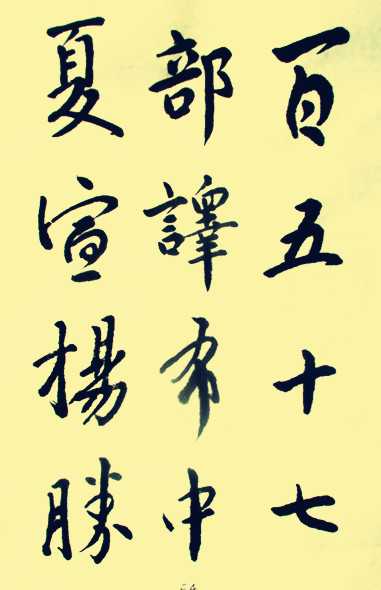 百五十七
部譯布中
夏宣揚勝